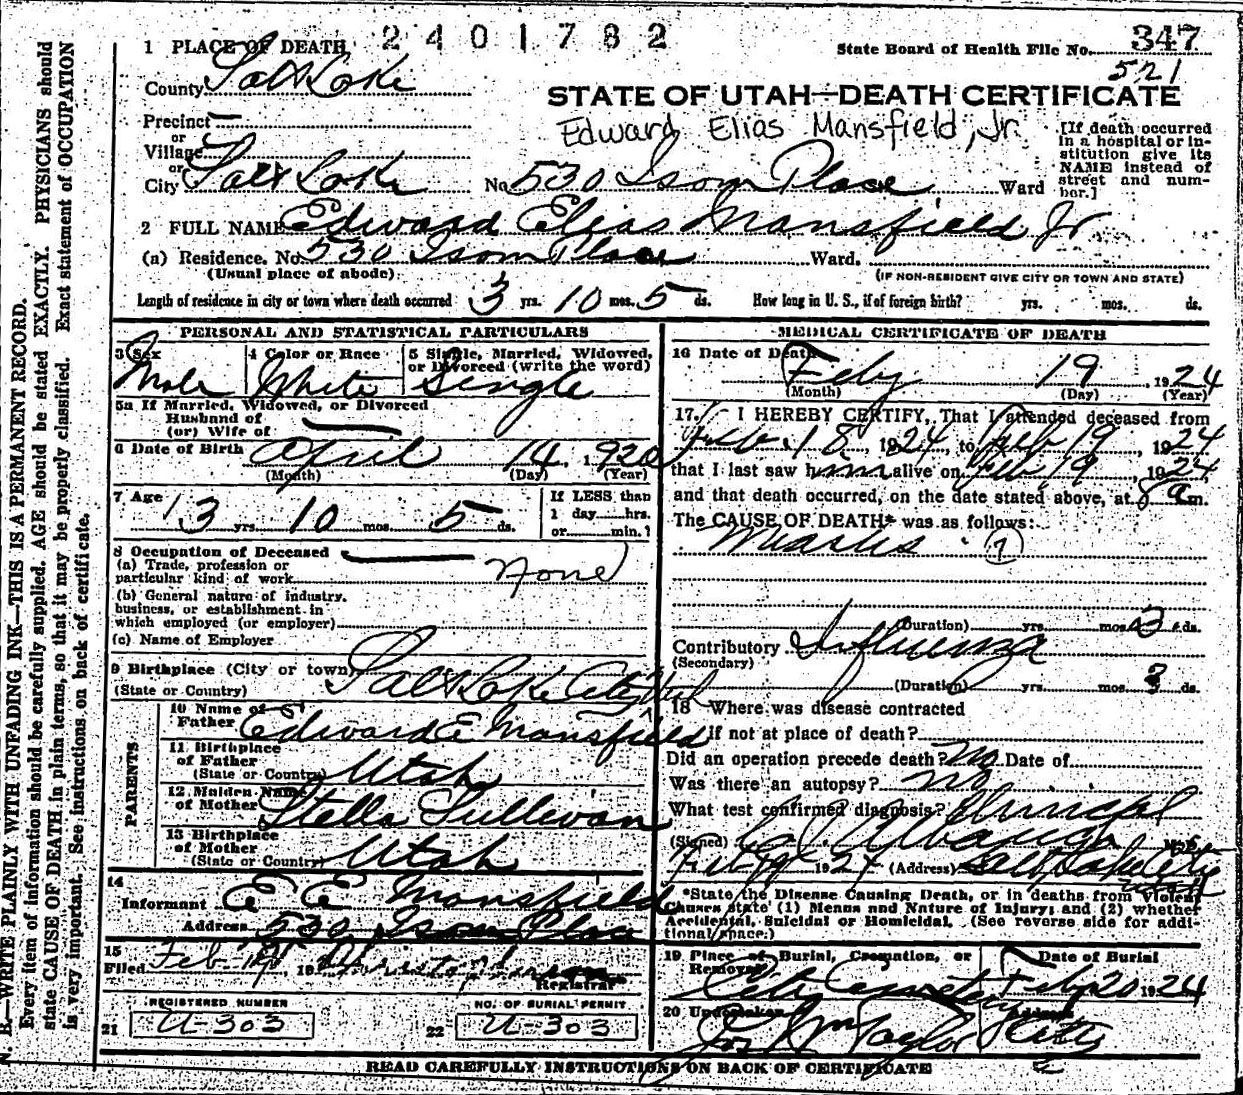 2401782
1 PLACE OF DEATH
State Board of Health File No. 347
521
County Salt Lake
STATE OF UTAH—DEATH CERTIFICATE
Precinct
or
Village
or
City Salt Lake
Edward Elias Mansfield, Jr.
No. 530 Isom Place Ward
[If death occurred in a hospital or institution give its NAME instead of street and number.]
2 FULL NAME Edward Elias Mansfield Jr
(a) Residence. No. 530 Isom Place Ward.
(Usual place of abode)
(IF NON-RESIDENT GIVE CITY OR TOWN AND STATE)
Length of residence in city or town where death occurred 3 yrs. 10 mos. 5 ds. How long in U. S., if of foreign birth? yrs. mos. ds.
PERSONAL AND STATISTICAL PARTICULARS
3 Sex
Male
4 Color or Race
White
5 Single, Married, Widowed, or Divorced (write the word)
Single
5a If Married, Widowed, or Divorced
Husband of
(or) Wife of
6 Date of Birth April 14, 1920
(Month) (Day) (Year)
7 Age
3 yrs. 10 mos. 5 ds.
If LESS than
1 day hrs.
or min.?
8 Occupation of Deceased
(a) Trade, profession or
particular kind of work None
(b) General nature of industry,
business, or establishment in
which employed (or employer)
(c) Name of Employer
9 Birthplace (City or town) Salt Lake City
(State or Country)
PARENTS
10 Name of
Father Edward E Mansfield
11 Birthplace
of Father
(State or Country) Utah
12 Maiden Name
of Mother Stella Sullivan
13 Birthplace
of Mother
(State or Country) Utah
14
Informant E E Mansfield
Address 530 Isom Place
15
Filed Feb 19, 19
Registrar
REGISTERED NUMBER
21 U-303
NO. OF BURIAL PERMIT
22 U-303
MEDICAL CERTIFICATE OF DEATH
16 Date of Death
Feby 19, 1924
(Month) (Day) (Year)
17. I HEREBY CERTIFY, That I attended deceased from
Feb. 18, 1924, to Feb 19, 1924
that I last saw him alive on Feb 19, 1924,
and that death occurred, on the date stated above, at 8 a m.
The CAUSE OF DEATH* was as follows:
Measles 7
(Duration) yrs. mos. 3 ds.
Contributory Influenza
(Secondary)
(Duration) yrs. mos. 3 ds.
18 Where was disease contracted
if not at place of death?
Did an operation precede death? No Date of
Was there an autopsy? no
What test confirmed diagnosis? Clinical
(Signed) Albaugh M.D.
Feb 19 1924 (Address) Salt Lake City Utah
*State the Disease Causing Death, or in deaths from Violent
Causes state (1) Means and Nature of Injury; and (2) whether
Accidental, Suicidal or Homicidal. (See reverse side for additional space.)
19 Place of Burial, Cremation, or
Removal
City Cemetery
Date of Burial
Feby 20 1924
20 Undertaker
Jos Wm Taylor
Address
City
READ CAREFULLY INSTRUCTIONS ON BACK OF CERTIFICATE
N. B.—WRITE PLAINLY WTH UNFADING INK—THIS IS A PERMANENT RECORD.
Every item of information should be carefully supplied. AGE should be stated EXACTLY. PHYSICIANS should
state CAUSE OF DEATH in plain terms, so that it may be properly classified. Exact statement of OCCUPATION
is very important. See instructions on back of certificate.